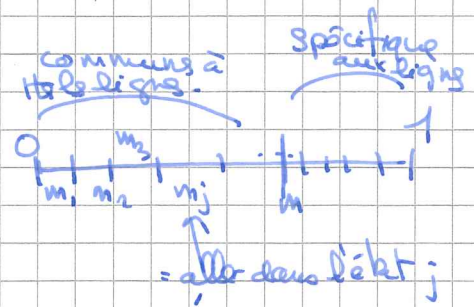 communs à
ttes les lignes.
spécifique
aux lignes
0
1
m₁
m₂
m₃
mⱼ
m
= aller dans l'état j